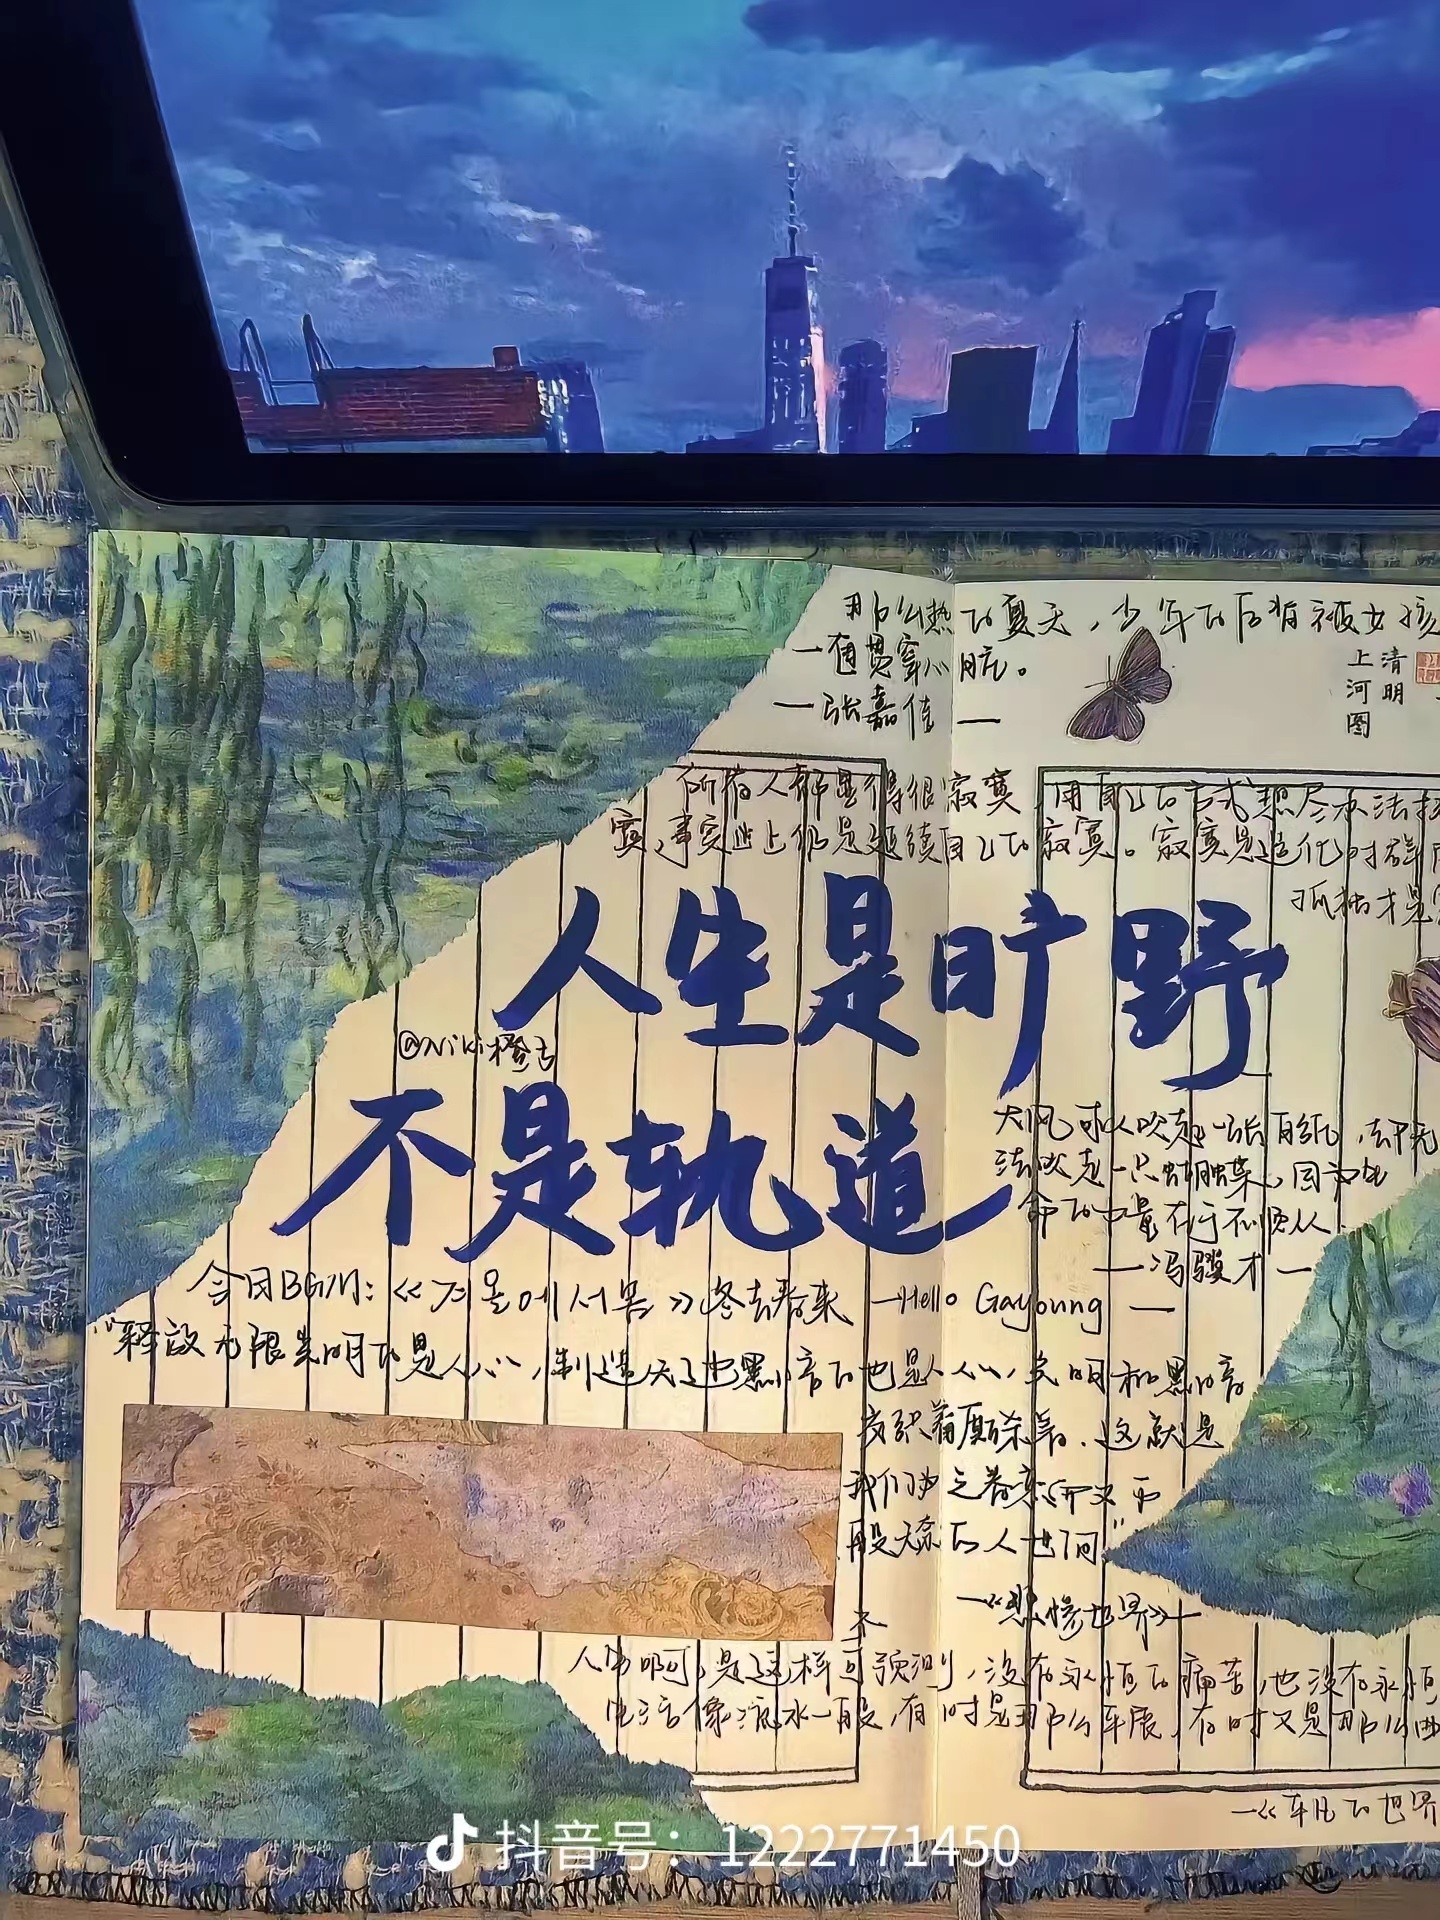 那么热的夏天，少年的后背被女孩
一
贯穿心
脏。
—张嘉佳—
清明
上河图
所有人都显得很寂寞，用自己的方式想尽办法
事实上仍是延续自己的寂寞。寂寞是造化对群
孤独才是
人生是旷野
@Niki橙
不是轨道
大风可以吹起一张白纸，却无
法吹走一只蝴蝶，因为生
命的力量在于不顺从.
—冯骥才—
今日BGM：《겨울에서 봄》冬去春来 —Hello Gayoung—
"释放无限光明的是人心，制造无边黑暗的也是人心，光明和黑暗
交织着厮杀着.这就是
我们为之眷恋而又万
般无奈的人世间"
—《悲惨世界》—
不
人生啊，是这样可预测，没有永恒的痛苦，也没有永恒
生活像流水一般，有时是那么平展，有时又是那么曲
—《平凡的世界
抖音号：1222771450